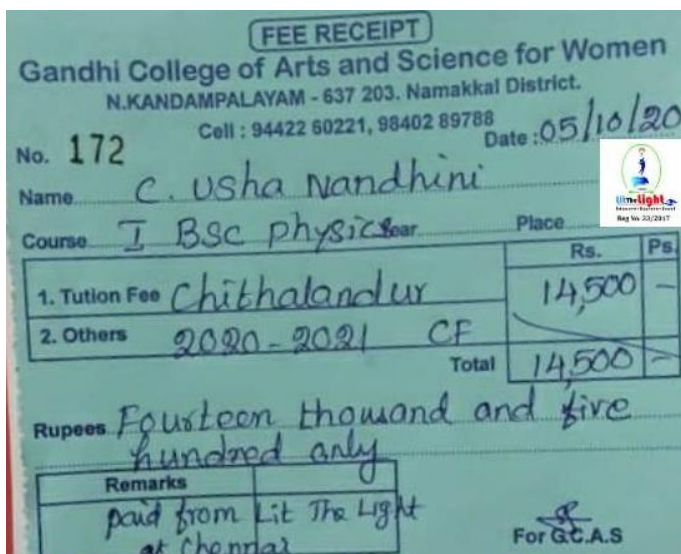 FEE RECEIPT
Gandhi College of Arts and Science for Women
N.KANDAMPALAYAM - 637 203. Namakkal District.
Cell : 94422 60221, 98402 89788
No. 172 Date : 05/10/20
Name C. Usha Nandhini
Course I BSC Physics ear Place
Rs. Ps.
1. Tution Fee Chithalandur 14,500 -
2. Others 2020-2021 CF
Total 14,500 -
Rupees Fourteen thousand and five
hundred only
Remarks
paid from Lit The Light
at Chennai
For G.C.A.S
Reg No. 33/2017